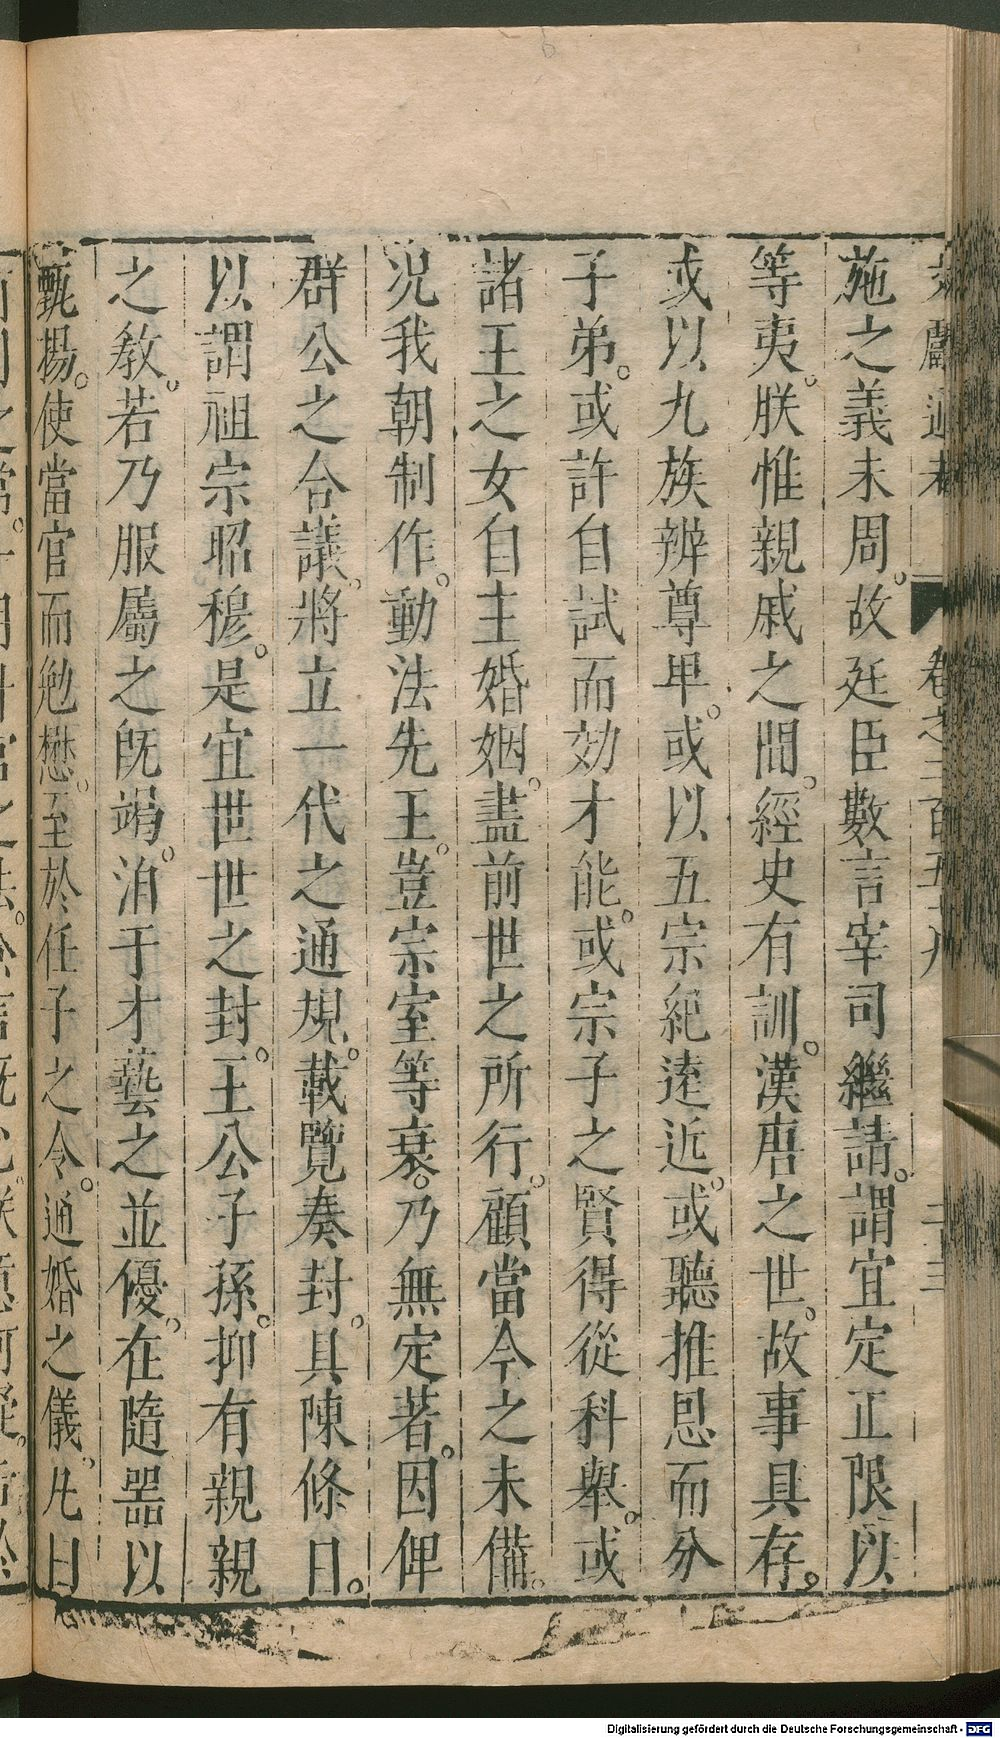 文獻通考 卷之二百五十九 二十三
施之義未周。故廷臣數言宰司繼請。謂宜定正限以
等夷。朕惟親戚之間。經史有訓。漢唐之世。故事具存。
或以九族辨尊卑。或以五宗紀遠近。或聽推恩而分
子弟。或許自試而効才能。或宗子之賢得從科舉。或
諸王之女自主婚姻。盡前世之所行。顧當今之未備。
況我朝制作。動法先王。豈宗室等衰。乃無定著。因俾
群公之合議。將立一代之通規。載覽奏封。具陳條目。
以謂祖宗昭穆。是宜世世之封。王公子孫。抑有親親
之教。若乃服屬之旣竭。洎于才藝之並優。在隨器以
甄揚。使當官而勉懋。至於任子之令。通婚之儀。凡曰
Digitalisierung gefördert durch die Deutsche Forschungsgemeinschaft - DFG